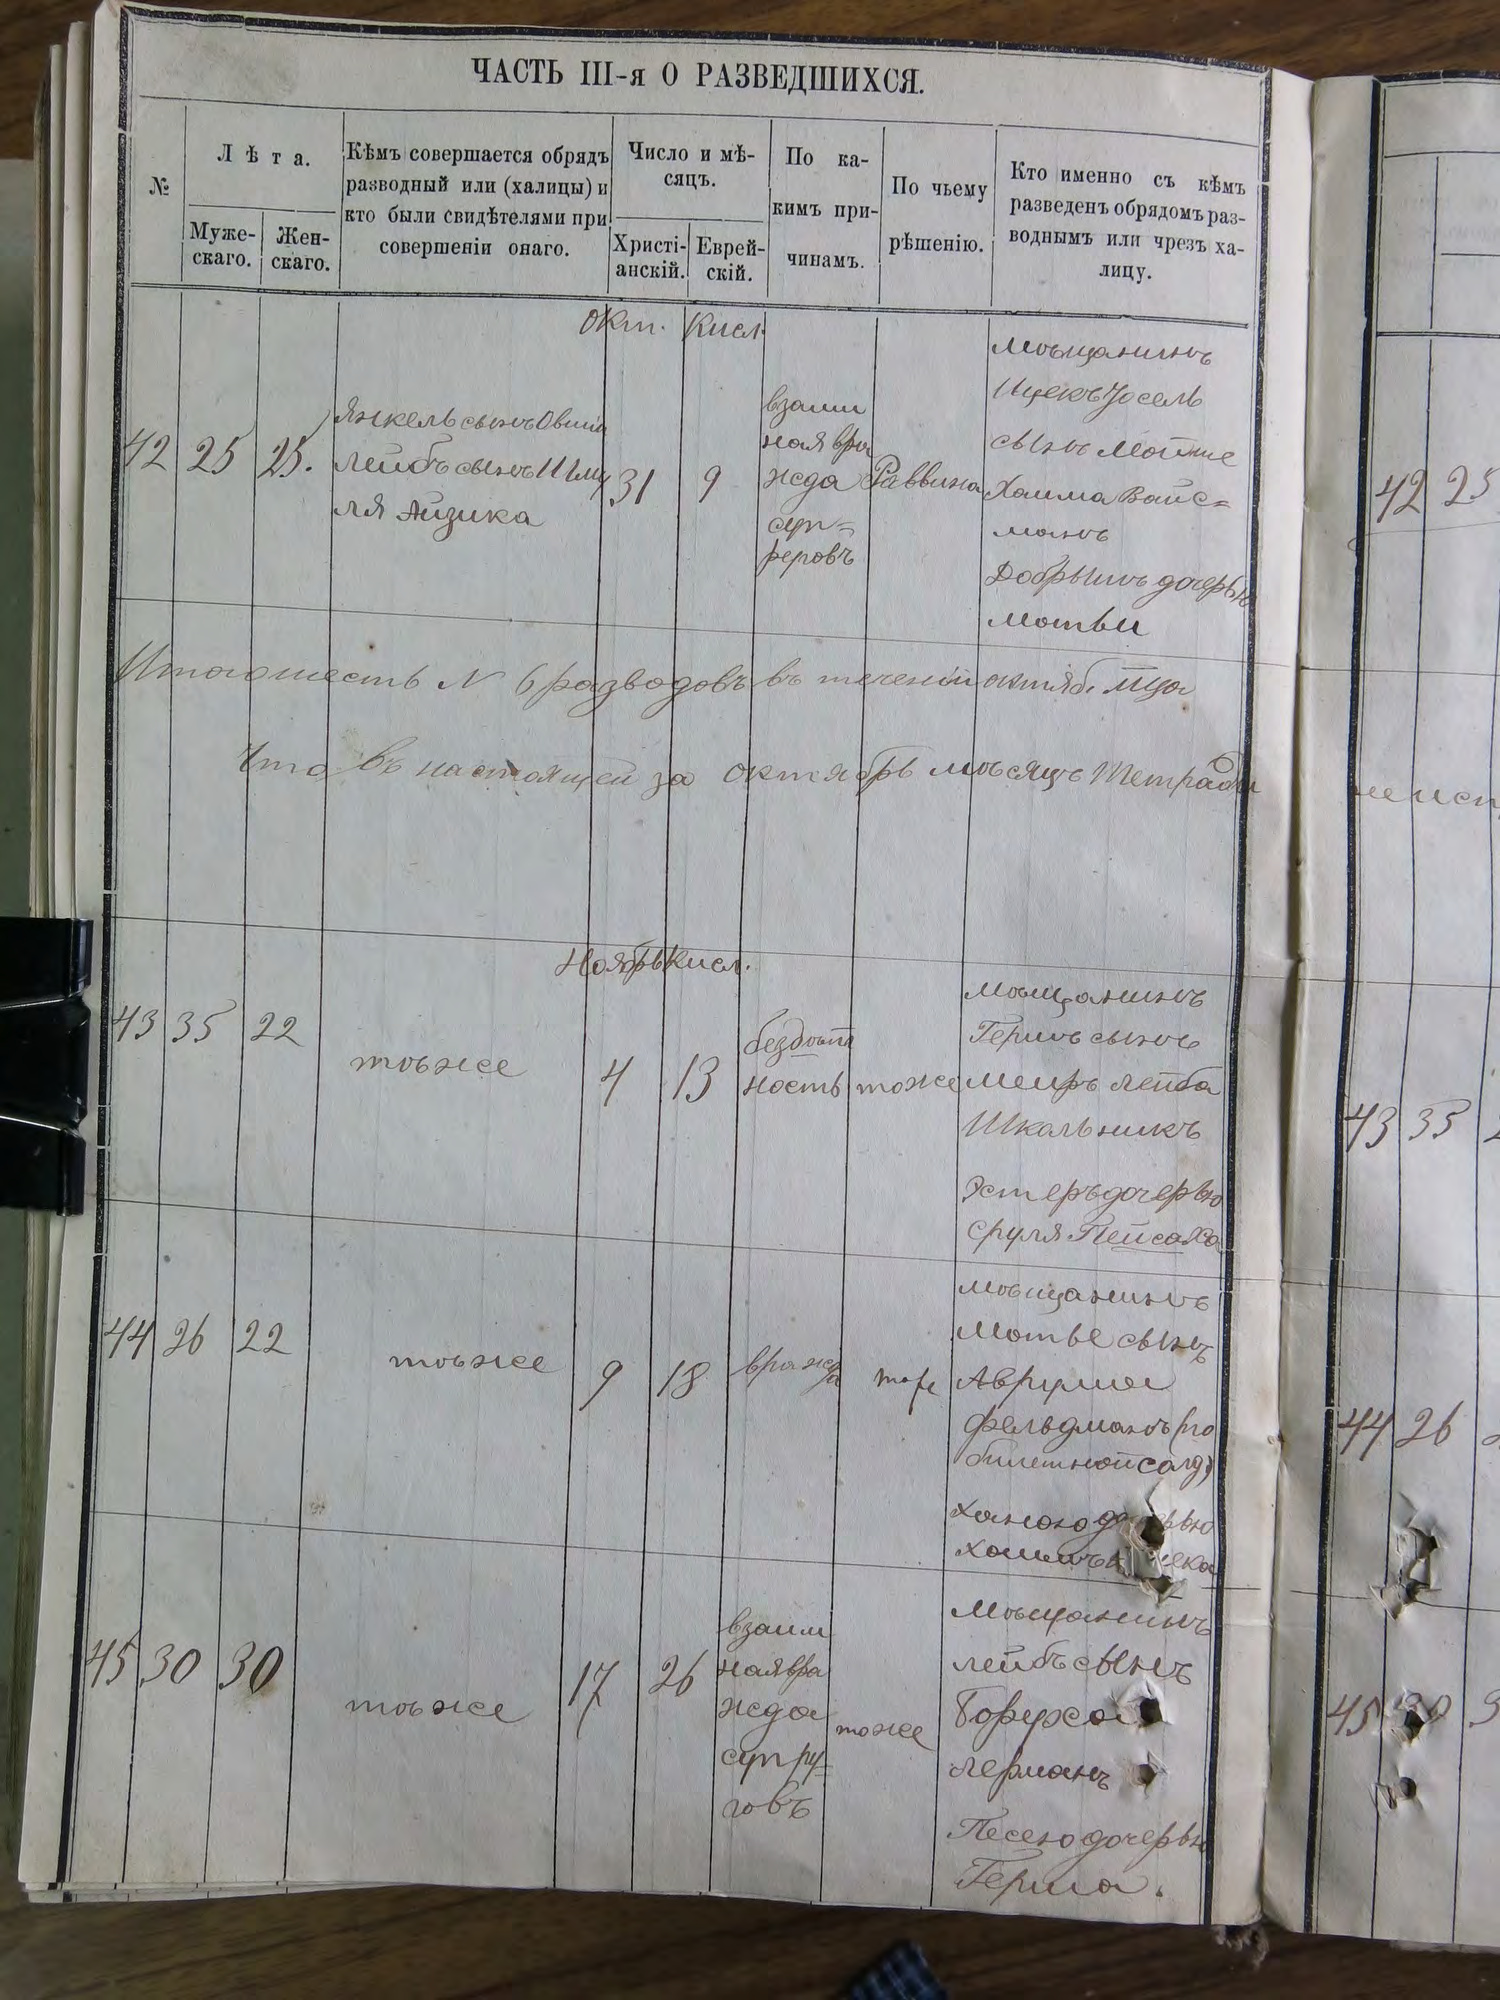 ЧАСТЬ III-я О РАЗВЕДШИХСЯ.
№
Лѣта.
Муже-
скаго.
Жен-
скаго.
Кѣмъ совершается обрядъ
разводный или (халицы) и
кто были свидѣтелями при
совершеніи онаго.
Число и мѣ-
сяцъ.
Христі-
анскій.
Еврей-
скій.
По ка-
кимъ при-
чинамъ.
По чьему
рѣшенію.
Кто именно съ кѣмъ
разведенъ обрядомъ раз-
воднымъ или чрезъ ха-
лицу.
Окт. Кисл.
42 25 25.
Янкель сынъ Овшія
лейбъ сынъ Шму
ля Айзика
31 9
взаим
ная вра
жда
суп=
реговъ
Раввина
мѣщанинъ
Ицекъ Іосель
сынъ Мотше
Хаима Вайс=
манъ
Добрышъ дочерью
мотьи
Итого шесть N 6 разводовъ въ теченіи октяб. мца
Что въ настоящей за октябрь мѣсяцъ Тетради
Ноябрь Кисл.
43 35 22
тѣже
4 13
бездѣт
ность
тоже
мѣщанинъ
Гершъ сынъ
меиръ лейба
Школьникъ
Эстеръ дочерью
сруля Пейсаха
44 26 22
тѣже
9 18
вражда
тоже
мѣщанинъ
Мотье сынъ
Аврума
фельдманъ (по
билетной солд)
Ханою
45 30 30
тѣже
17 26
взаим
ная вра
жда
супру=
говъ
тоже
Мѣщанинъ
лейбъ сынъ
Боруха
лерманъ
Песею дочерью
Герша.
42 25
43 35
44 26
45 30